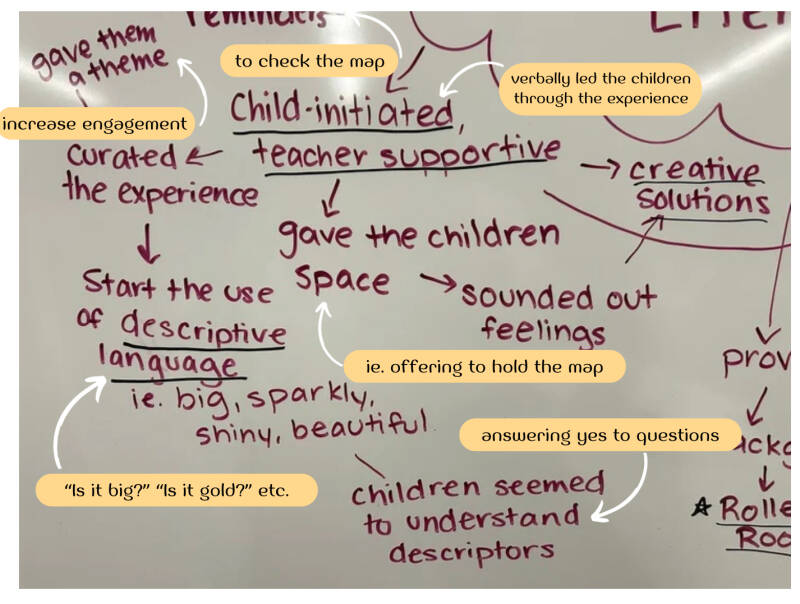 reminders
gave them
a theme
to check the map
verbally led the children
through the experience
increase engagement
Child-initiated,
teacher supportive
curated
the experience
creative
solutions
gave the children
space
sounded out
feelings
Start the use
of descriptive
language
ie. offering to hold the map
ie. big, sparkly,
shiny, beautiful
answering yes to questions
"Is it big?" "Is it gold?" etc.
children seemed
to understand
descriptors
prov
ackg
Rolle
Roo